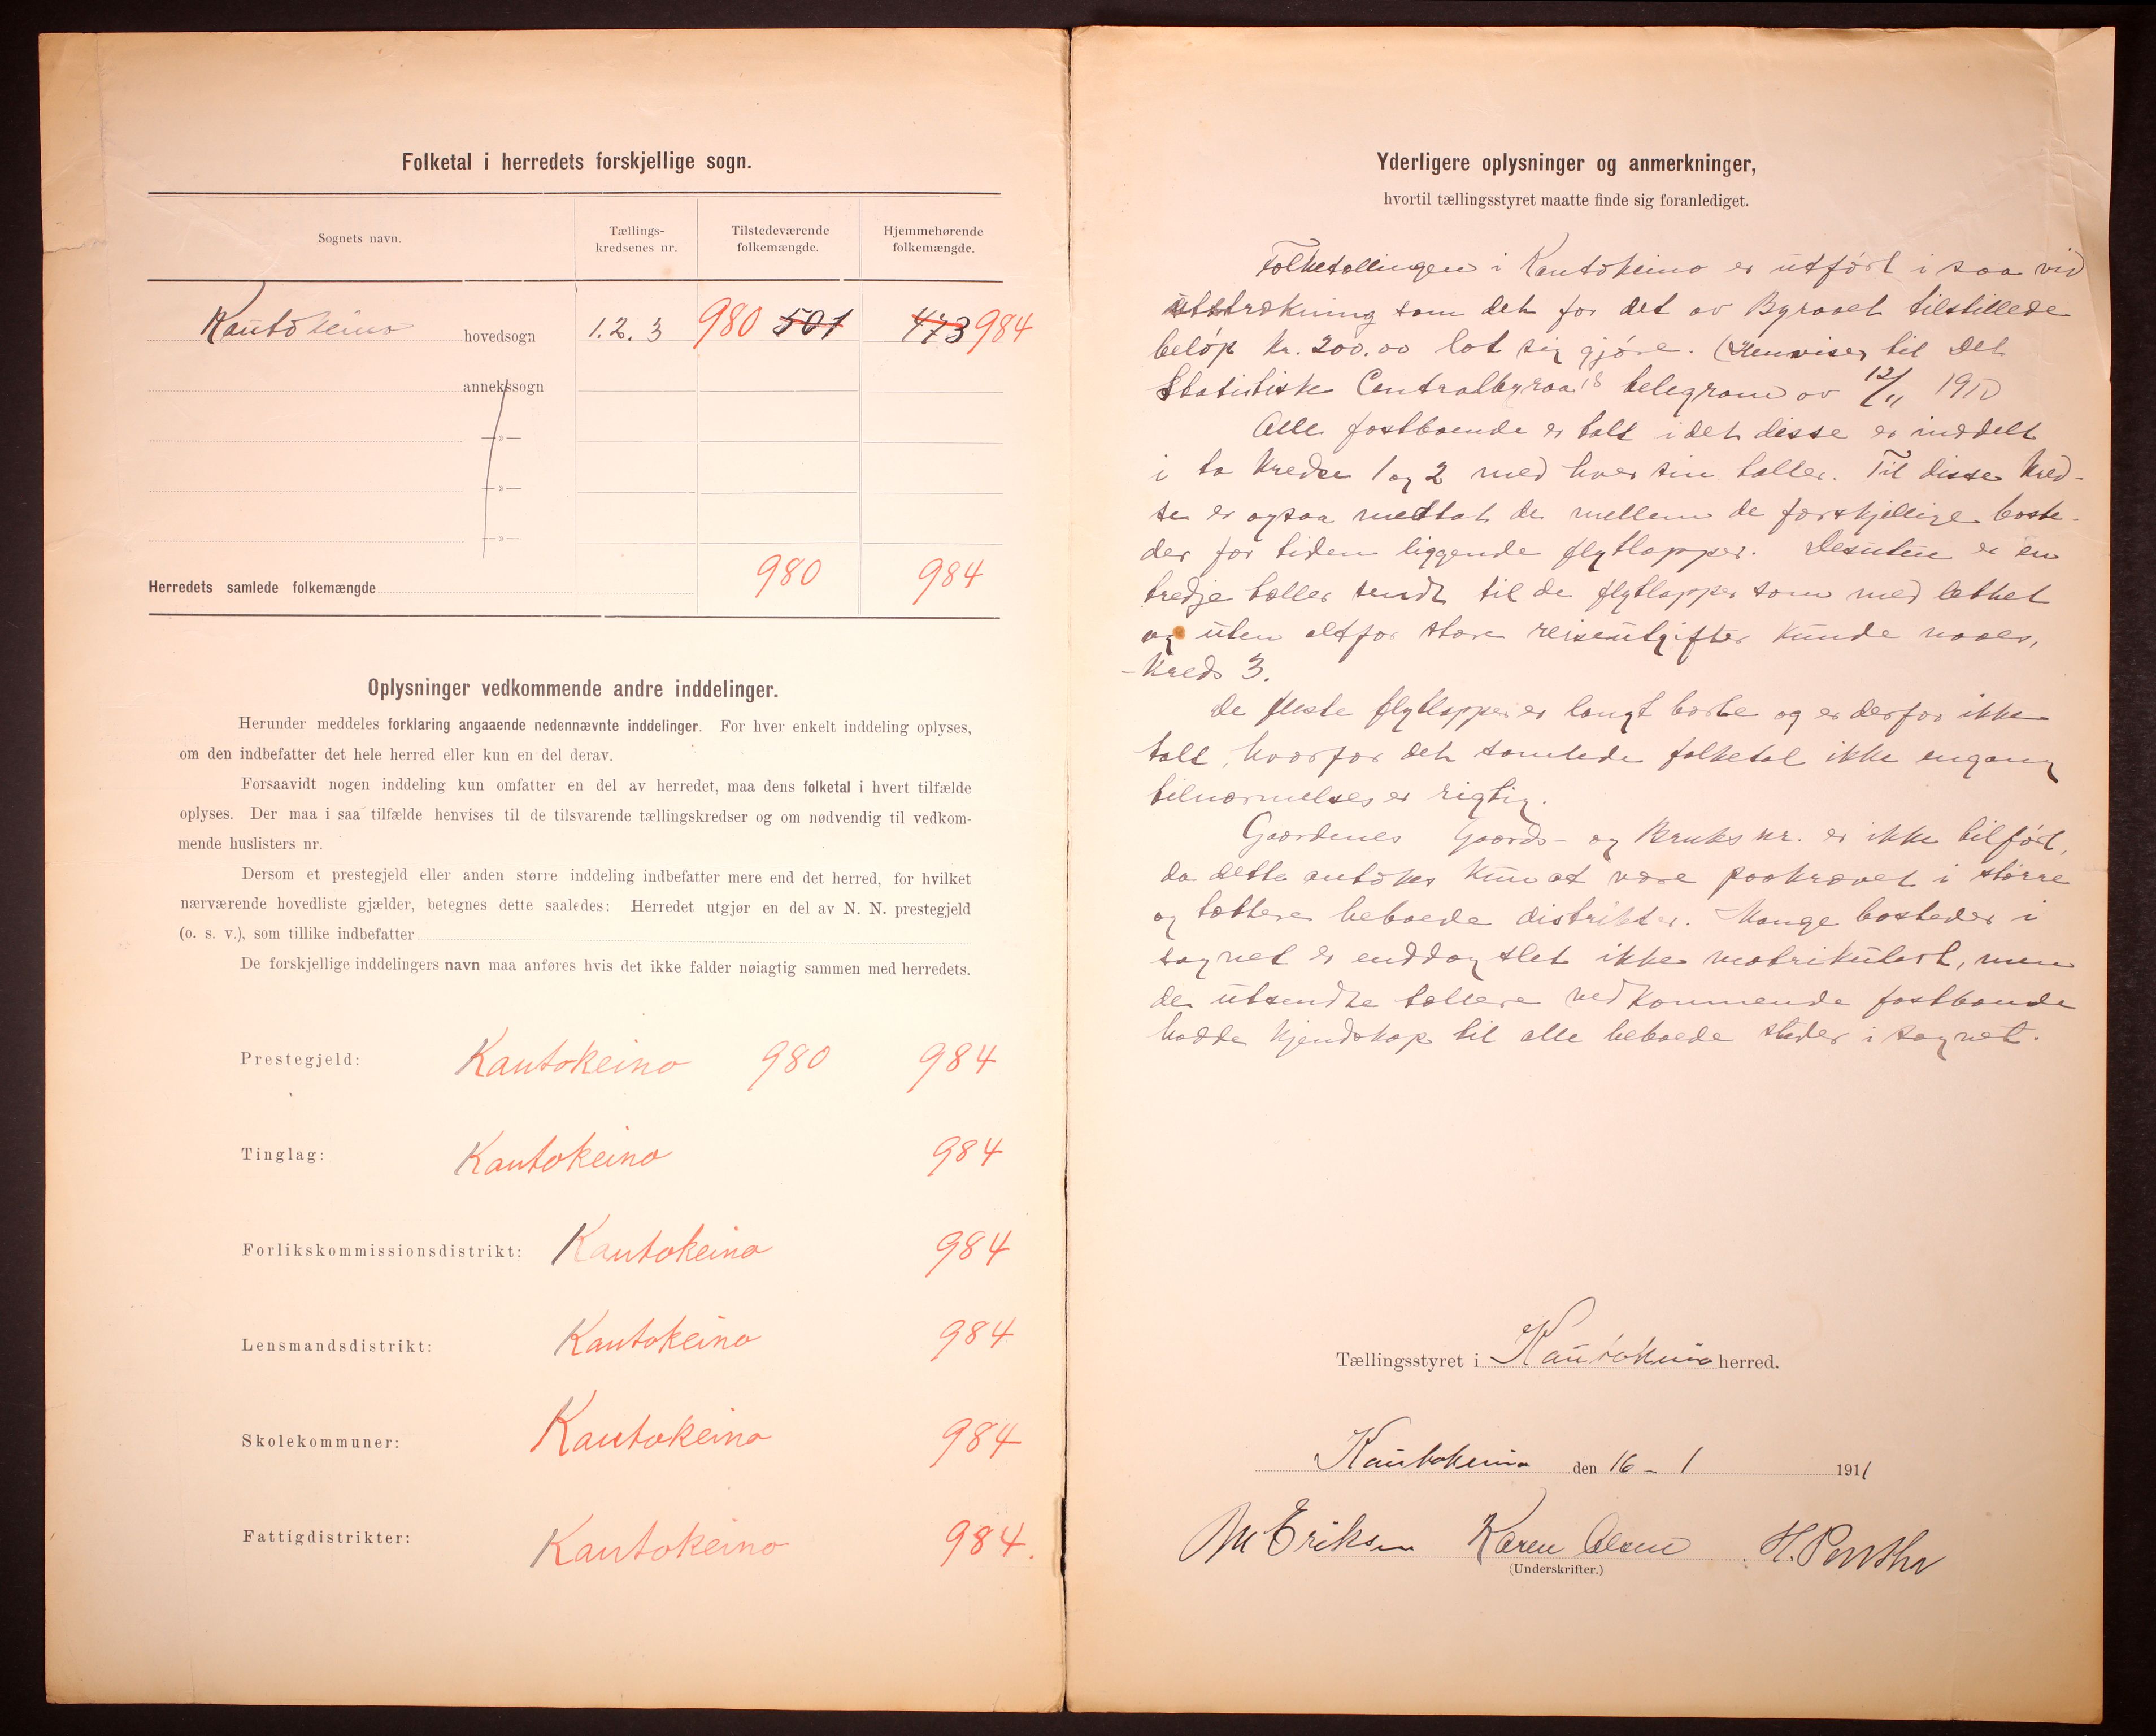 Folketal i herredets forskjellige sogn.
Sognets navn.
Tællings-
kredsenes nr.
Tilstedeværende
folkemængde.
Hjemmehørende
folkemængde.
Kautokeino hovedsogn 1. 2. 3 980 501 473 984
annekssogn
—»—
—»—
—»—
Herredets samlede folkemængde 980 984
Oplysninger vedkommende andre inddelinger.
Herunder meddeles forklaring angaaende nedennævnte inddelinger. For hver enkelt inddeling oplyses,
om den indbefatter det hele herred eller kun en del derav.
Forsaavidt nogen inddeling kun omfatter en del av herredet, maa dens folketal i hvert tilfælde
oplyses. Der maa i saa tilfælde henvises til de tilsvarende tællingskredser og om nødvendig til vedkom-
mende huslisters nr.
Dersom et prestegjeld eller anden større inddeling indbefatter mere end det herred, for hvilket
nærværende hovedliste gjælder, betegnes dette saaledes: Herredet utgjør en del av N. N. prestegjeld
(o. s. v.), som tillike indbefatter
De forskjellige inddelingers navn maa anføres hvis det ikke falder nøiagtig sammen med herredets.
Prestegjeld: Kautokeino 980 984
Tinglag: Kautokeino 984
Forlikskommissionsdistrikt: Kautokeino 984
Lensmandsdistrikt: Kautokeino 984
Skolekommuner: Kautokeino 984
Fattigdistrikter: Kautokeino 984.
Yderligere oplysninger og anmerkninger,
hvortil tællingsstyret maatte finde sig foranlediget.
Folketællingen i Kautokeino er utført i saa vid
utstrækning som det for det av Byraaet tilstillede
beløp kr. 200.00 lot sig gjøre. (Henviser til Det
Statistiske Centralbyraa's telegram av 12/11 1910
Alle fastboende er talt idet disse er inddelt
i to kredse 1 og 2 med hver sin tæller. Til disse kred-
se er ogsaa medtat de mellem de forskjellige boste-
der for tiden liggende flytlapper. Desuten er en
tredje tæller sendt til de flytlapper som med lethet
og uten altfor store reiseutgifter kunde naaes,
- Kreds 3.
De fleste flytlapper er langt borte og er derfor ikke
talt, hvorfor det samlede folketal ikke engang
tilnærmelses er rigtig.
Gaardenes Gaards- og Bruks nr. er ikke tilført,
da dette antokes kun at være paakrævet i større
og tættere beboede distrikter. Mange bosteder i
sognet er enddog slet ikke matrikulert, men
de utsendte tællere vedkommende fastboende
hadde kjendskap til alle beboede steder i sognet.
Tællingsstyret i Kautokeino herred.
Kautokeino den 16 - 1 1911
M Eriksen Karen Olsen H.
(Underskrifter.)